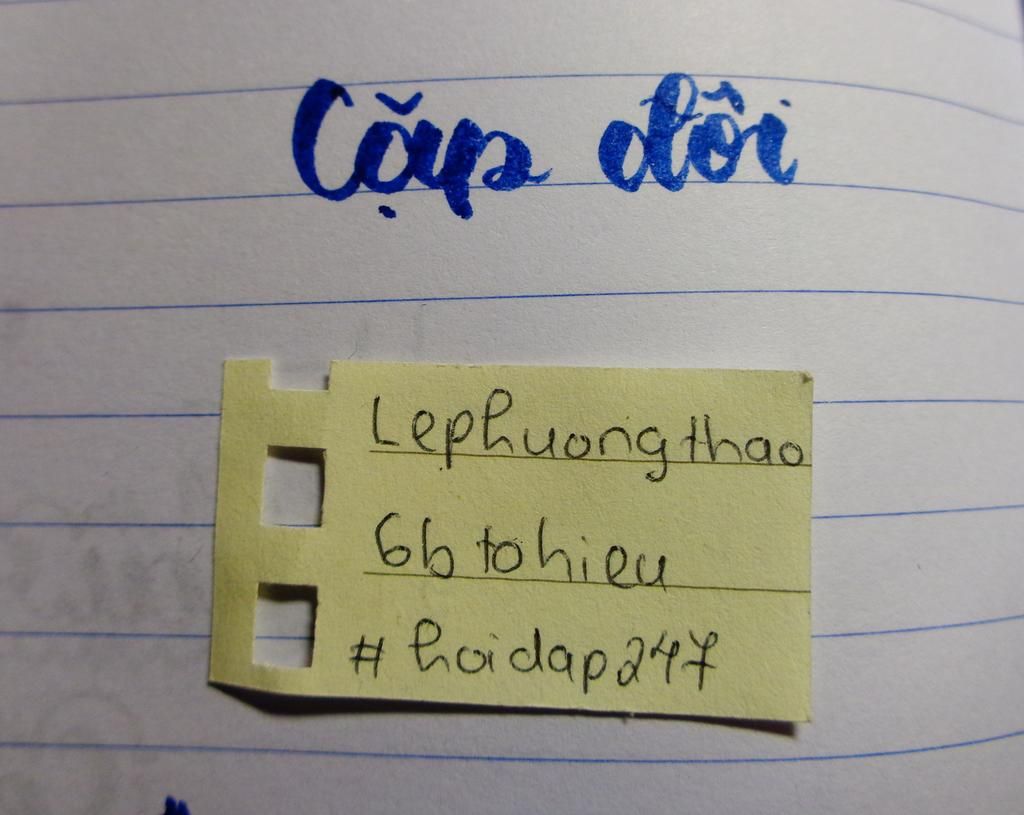 Cặp đôi
Lephuongthao
6b tohieu
# hoidap247